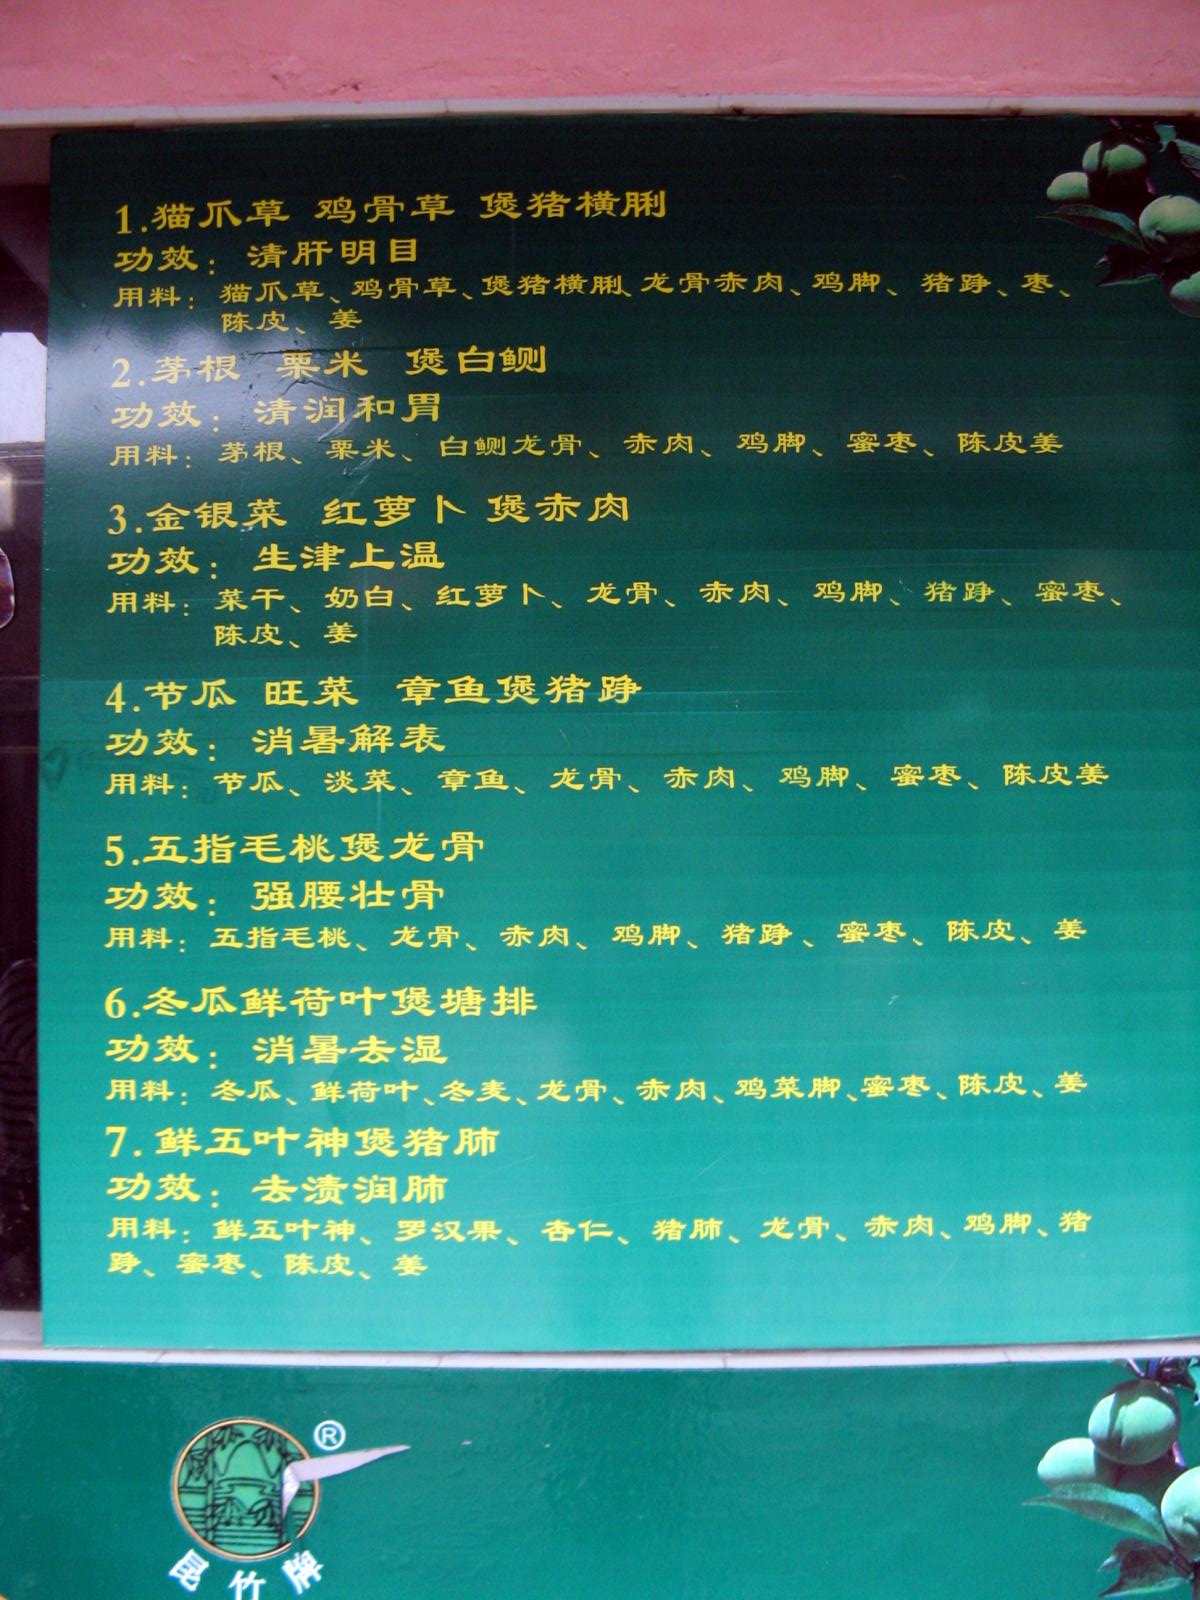 1.猫爪草 鸡骨草 煲猪横脷
功效：清肝明目
用料：猫爪草、鸡骨草、煲猪横脷、龙骨赤肉、鸡脚、猪踭、枣、
陈皮、姜
2.茅根 粟米 煲白鲗
功效：清润和胃
用料：茅根、粟米、白鲗龙骨、赤肉、鸡脚、蜜枣、陈皮姜
3.金银菜 红萝卜 煲赤肉
功效：生津上温
用料：菜干、奶白、红萝卜、龙骨、赤肉、鸡脚、猪踭、蜜枣、
陈皮、姜
4.节瓜 旺菜 章鱼煲猪踭
功效：消暑解表
用料：节瓜、淡菜、章鱼、龙骨、赤肉、鸡脚、蜜枣、陈皮姜
5.五指毛桃煲龙骨
功效：强腰壮骨
用料：五指毛桃、龙骨、赤肉、鸡脚、猪踭、蜜枣、陈皮、姜
6.冬瓜鲜荷叶煲塘排
功效：消暑去湿
用料：冬瓜、鲜荷叶、冬麦、龙骨、赤肉、鸡菜脚、蜜枣、陈皮、姜
7.鲜五叶神煲猪肺
功效：去渍润肺
用料：鲜五叶神、罗汉果、杏仁、猪肺、龙骨、赤肉、鸡脚、猪
踭、蜜枣、陈皮、姜
®
昆竹牌